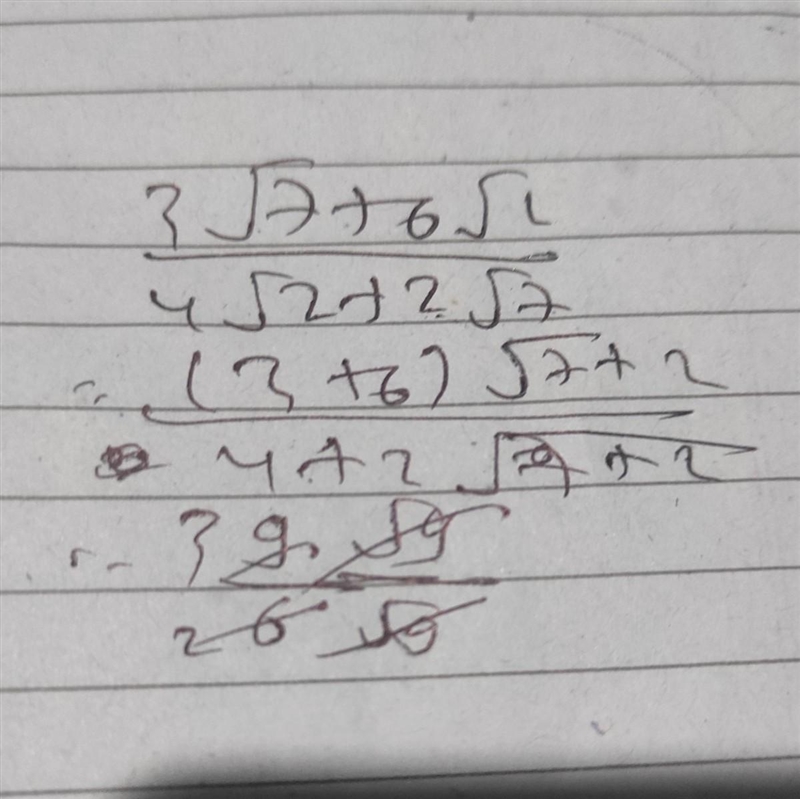 3√7+6√2
4√2+2√7
∴ (3+6)√7+2
4+2√7+2
∴ 3 9 √9
2 6 √9